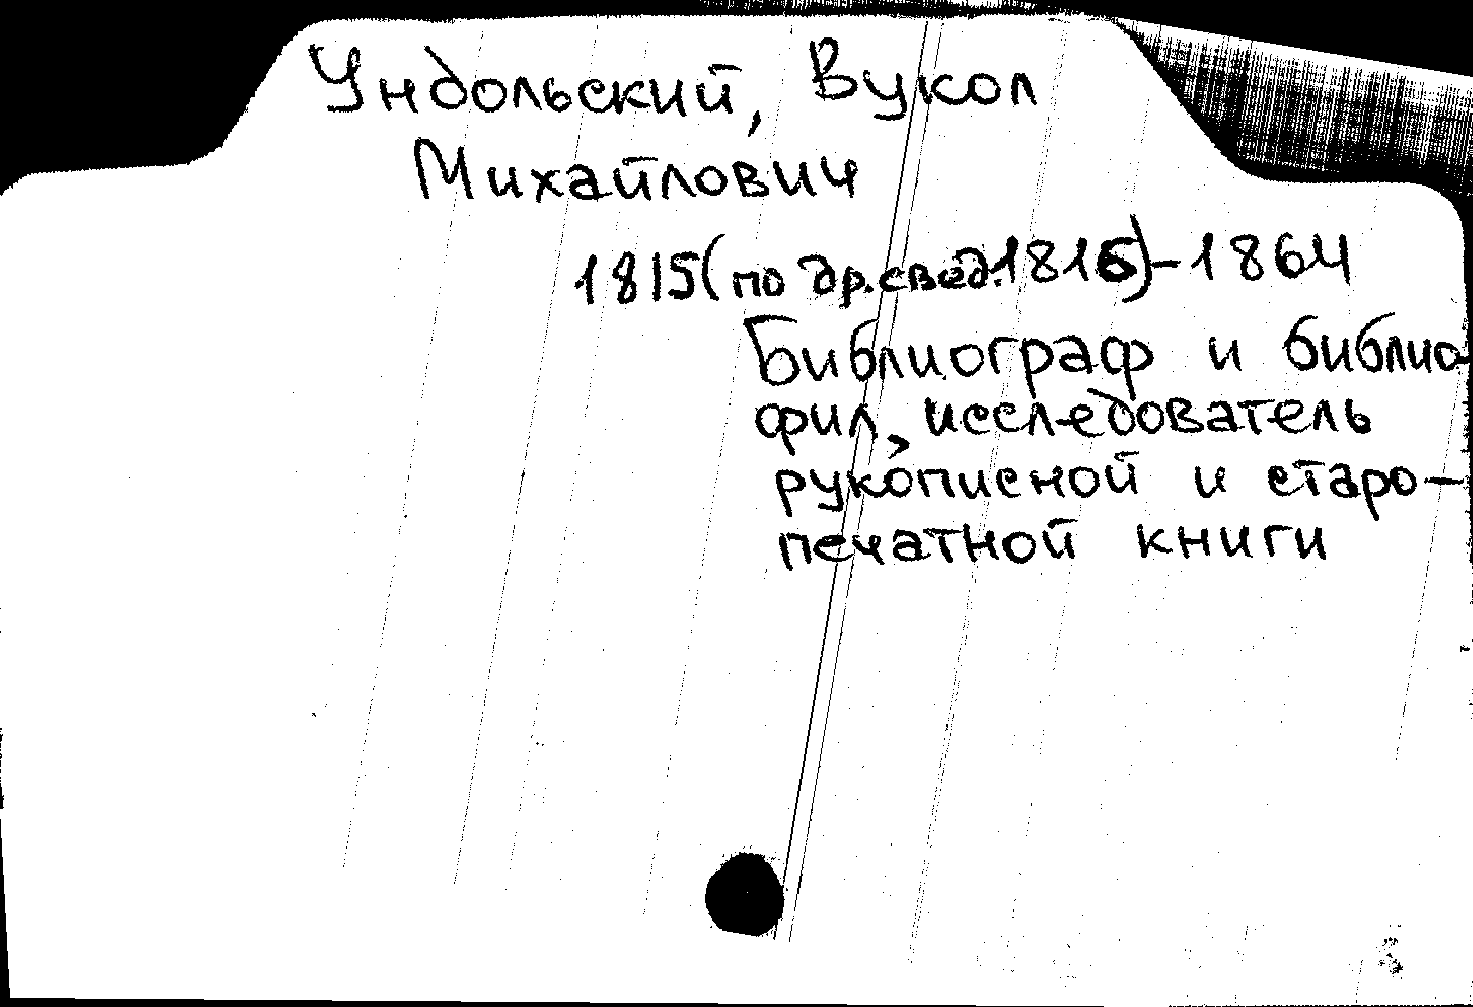 Ундольский, Вукол
Михайлович
1815(по др.свед.1816)-1864
Библиограф и библио-
фил, исследователь
рукописной и старо-
печатной книги